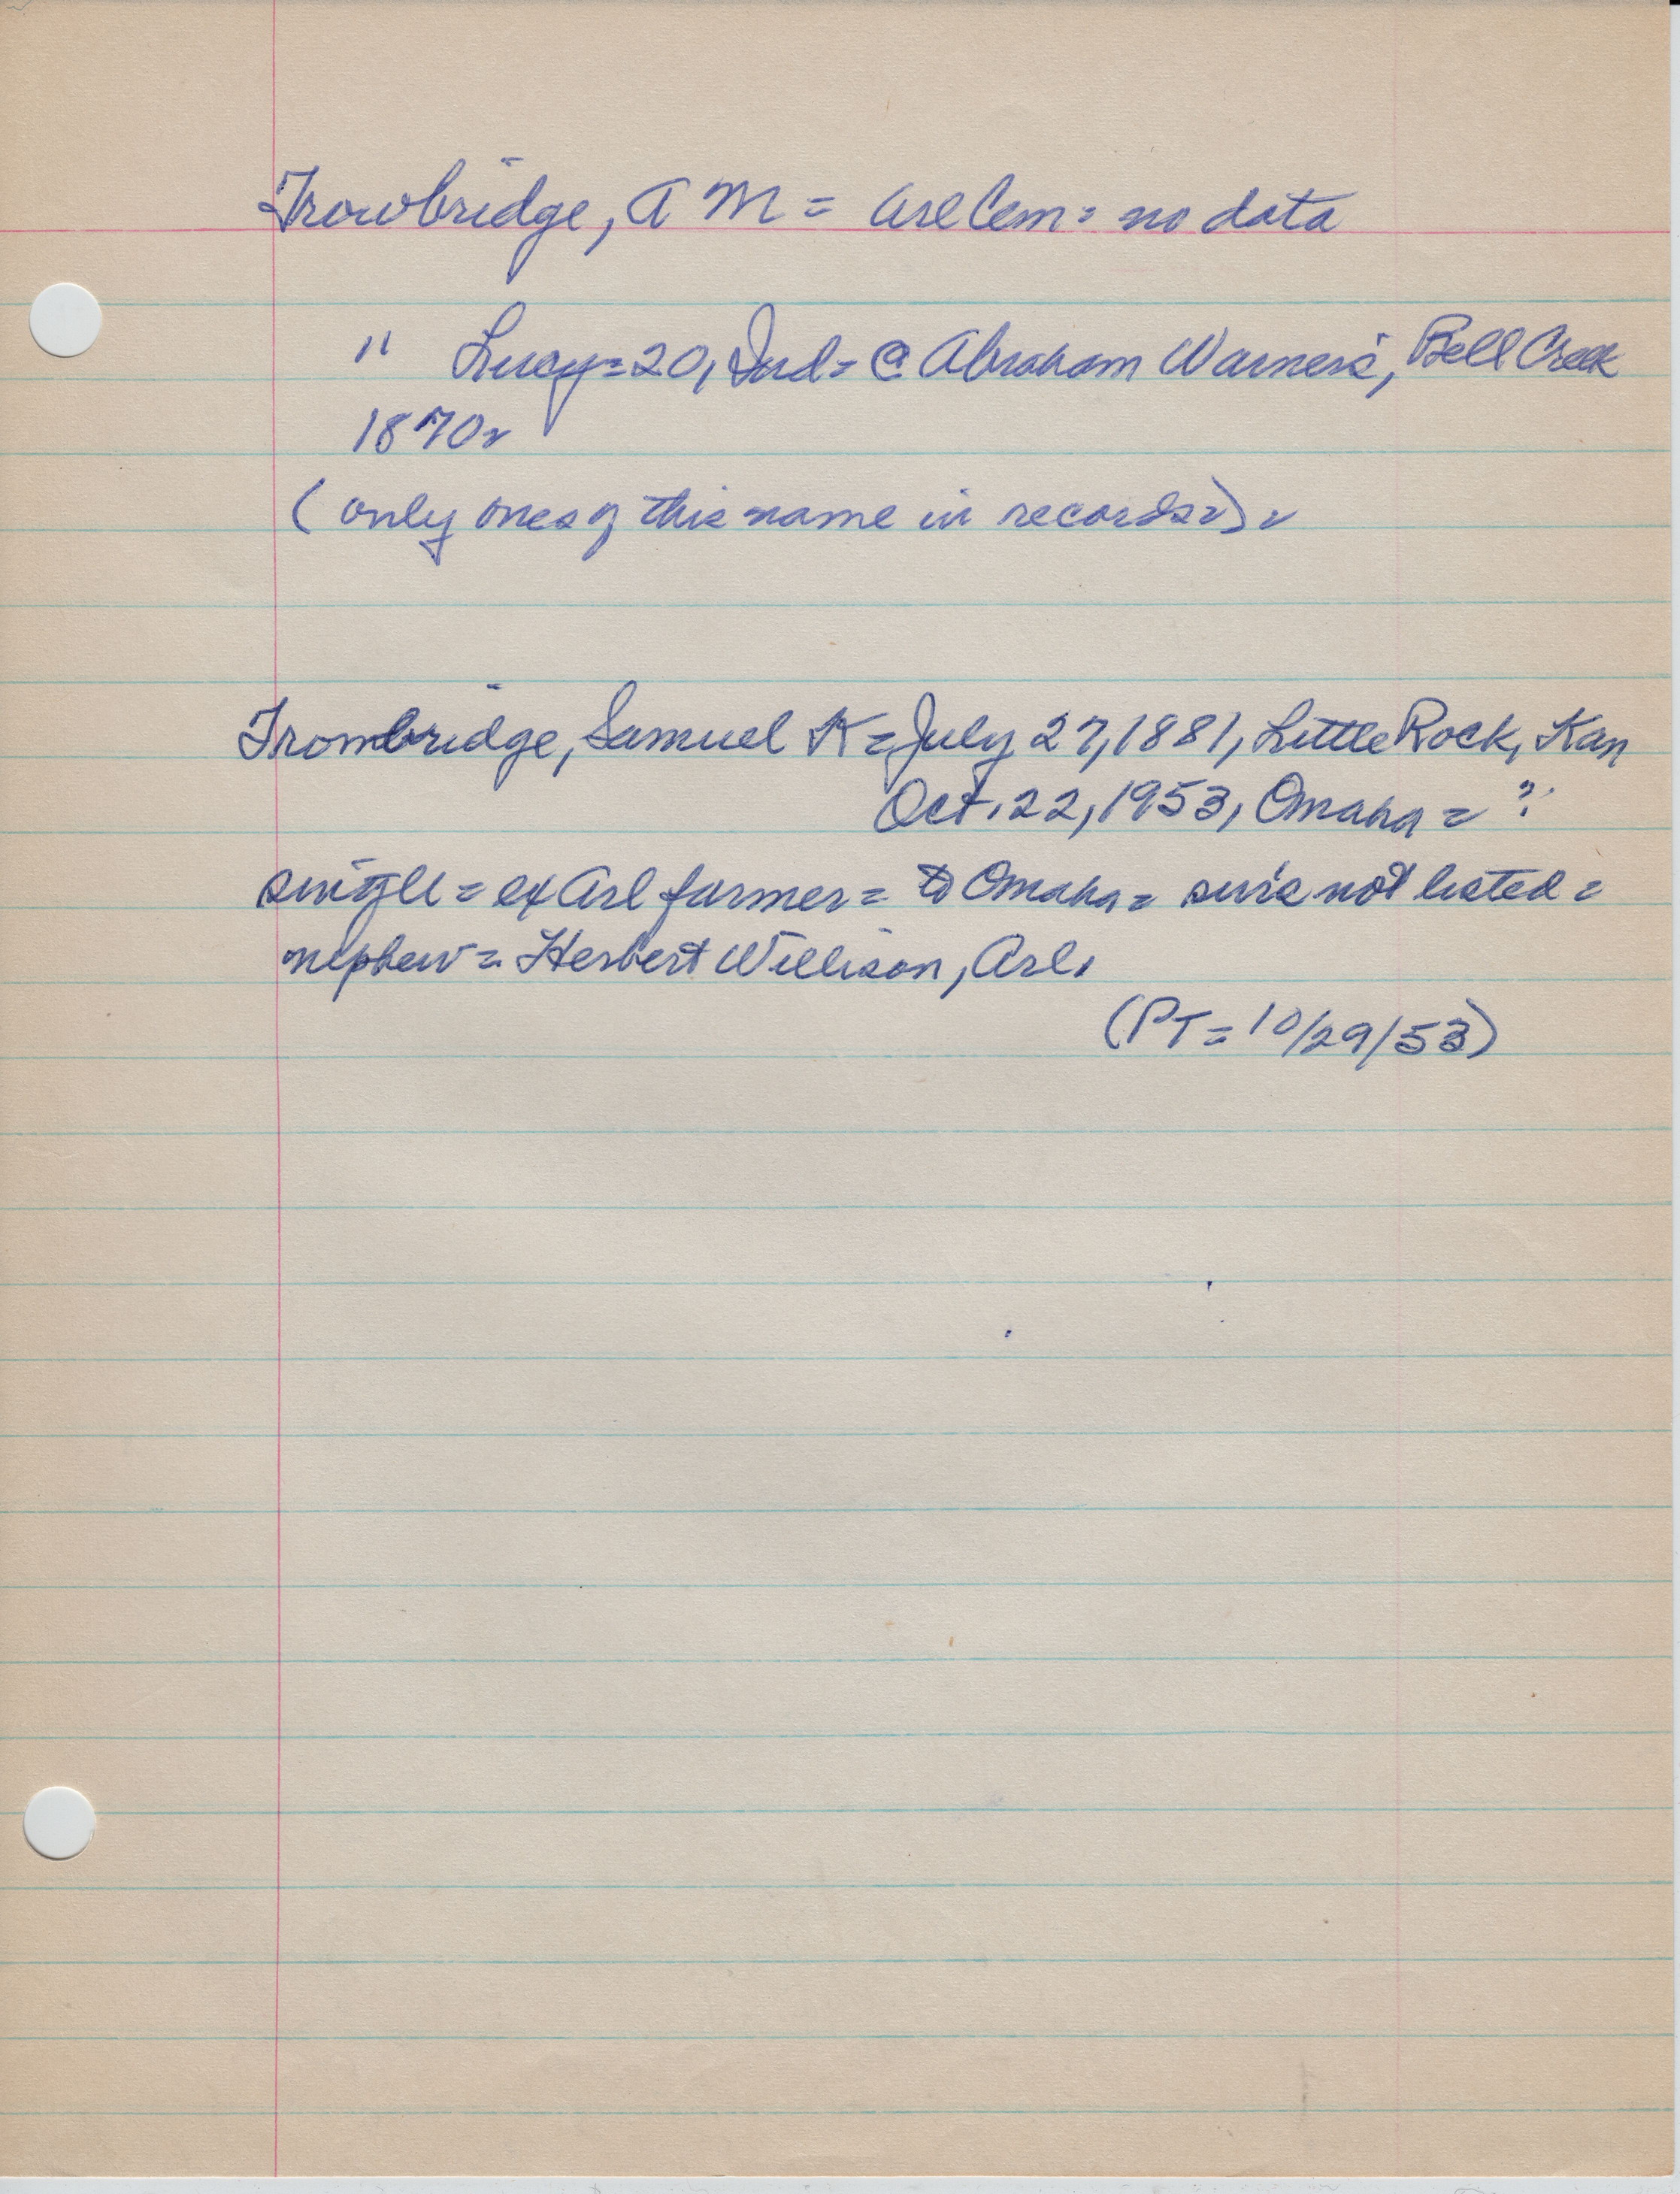 Trowbridge, A M = Arl Cem = no data
" Lucy = 20, Ind = @ Abraham Warner's, Bell Creek
1870 =
(only ones of this name in records =) =
Trombridge, Samuel K = July 27, 1881, Little Rock, Kan
Oct. 22, 1953, Omaha = ?
single = ex Arl farmer = to Omaha = sur's not listed =
nephew = Herbert Willison, Arl.
(PT = 10/29/53)